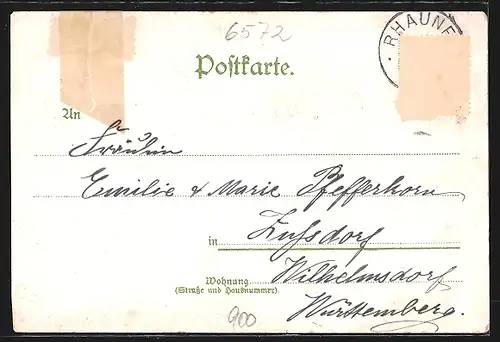 6572
RHAUNE
Postkarte.
An
Fräulein
Emilie & Marie Pfefferkorn
in Zußdorf
Wohnung Wilhelmsdorf
(Straße und Hausnummer)
Württemberg.
900